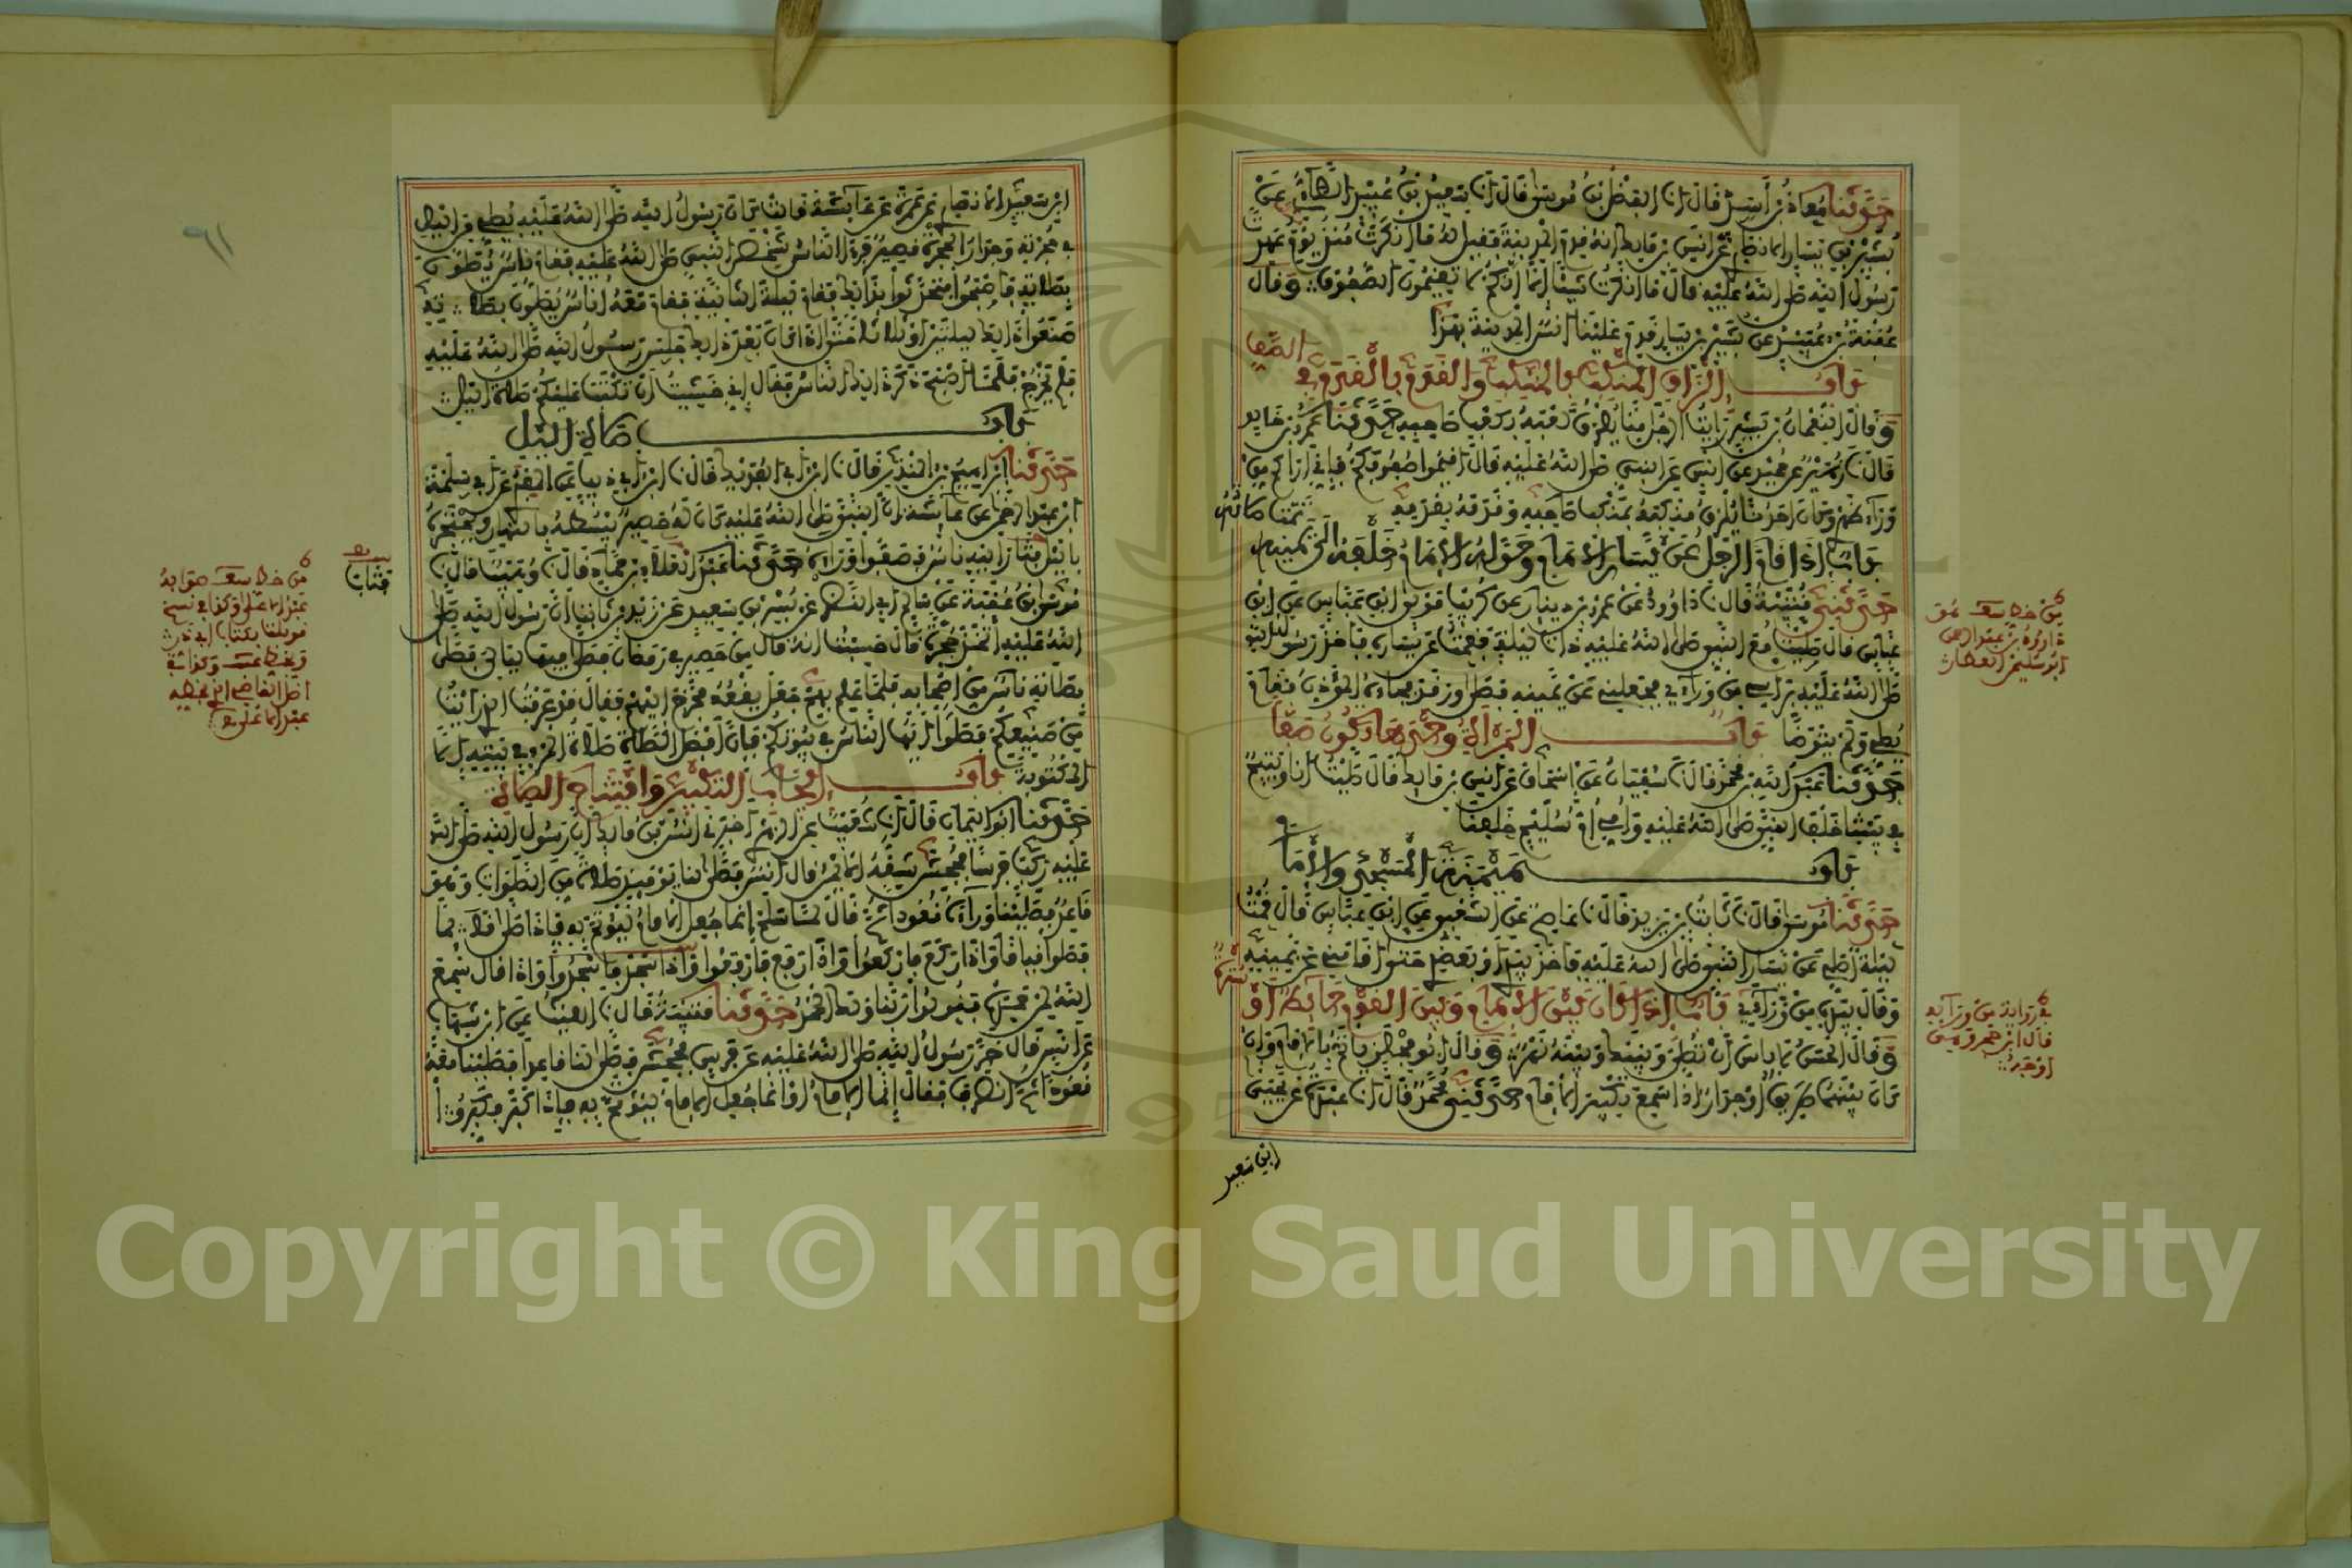 حَدَّثَنَا مُعَاذُ بْنُ أَسَدٍ قَالَ انا الفَضْلُ بْنُ مُوسَى قَالَ انا سَعِيدُ بْنُ عُبَيْدٍ الطَّاءِيُّ عَنْ
بُشَيْرِ بْنِ يَسَارٍ الانصَارِي عَنْ أَنَسِ بْنِ مَالِكٍ أَنَّهُ قَدِمَ المَدِينَةَ فَقِيلَ لَهُ مَا أَنْكَرْتَ مُنْذُ يَوْمِ عَهِدْتَ
رَسُولَ اللهِ صَلَّى اللهُ عَلَيْهِ قَالَ مَا أَنْكَرْتُ شَيْئًا إِلاَّ أَنَّكُمْ لاَ تُقِيمُونَ الصُّفُوفَ وَقَالَ
عُقْبَةُ بْنُ عُبَيْدٍ عَنْ بُشَيْرِ بْنِ يَسَارٍ قَدِمَ عَلَيْنَا أَنَسٌ المَدِينَةَ بِهَذَا
بَاب إِلْزَاقِ المَنْكِبِ بِالمَنْكِبِ وَالقَدَمِ بِالقَدَمِ فِي الصَّفِّ
وَقَالَ النُّعْمَانُ بْنُ بَشِيرٍ رَأَيْتُ الرَّجُلَ مِنَّا يُلْزِقُ كَعْبَهُ بِكَعْبِ صَاحِبِهِ حَدَّثَنَا عَمْرُو بْنُ خَالِدٍ
قَالَ نا زُهَيْرٌ عَنْ حُمَيْدٍ عَنْ أَنَسٍ عَنِ النَّبِيِّ صَلَّى اللهُ عَلَيْهِ قَالَ أَقِيمُوا صُفُوفَكُمْ فَإِنِّي أَرَاكُمْ مِنْ
وَرَاءِ ظَهْرِي وَكَانَ أَحَدُنَا يُلْزِقُ مَنْكِبَهُ بِمَنْكِبِ صَاحِبِهِ وَقَدَمَهُ بِقَدَمِهِ
بَاب إِذَا قَامَ الرَّجُلُ عَنْ يَسَارِ الإِمَامِ وَحَوَّلَهُ الإِمَامُ خَلْفَهُ إِلَى يَمِينِهِ تَمَّتْ صَلاَتُهُ
حَدَّثَنِي قُتَيْبَةُ قَالَ نا دَاوُودُ عَنْ عَمْرِو بْنِ دِينَارٍ عَنْ كُرَيْبٍ مَوْلَى ابْنِ عَبَّاسٍ عَنِ ابْنِ
عَبَّاسٍ قَالَ صَلَّيْتُ مَعَ النَّبِيِّ صَلَّى اللهُ عَلَيْهِ ذَاتَ لَيْلَةٍ فَقُمْتُ عَنْ يَسَارِهِ فَأَخَذَ رَسُولُ اللهِ
صَلَّى اللهُ عَلَيْهِ بِرَأْسِي مِنْ وَرَاءِي فَجَعَلَنِي عَنْ يَمِينِهِ فَصَلَّى وَرَقَدَ فَجَاءَهُ المُؤَذِّنُ فَقَامَ
يُصَلِّي وَلَمْ يَتَوَضَّأْ بَاب المَرْأَةُ وَحْدَهَا تَكُونُ صَفًّا
حَدَّثَنَا عَبْدُ اللهِ بْنُ مُحَمَّدٍ قَالَ نا سُفْيَانُ عَنْ إِسْحَاقَ عَنْ أَنَسِ بْنِ مَالِكٍ قَالَ صَلَّيْتُ أَنَا وَيَتِيمٌ
فِي بَيْتِنَا خَلْفَ النَّبِيِّ صَلَّى اللهُ عَلَيْهِ وَأُمِّي أُمُّ سُلَيْمٍ خَلْفَنَا
بَاب مَيْمَنَةِ المَسْجِدِ وَالإِمَامِ
حَدَّثَنَا مُوسَى قَالَ نا ثَابِتُ بْنُ يَزِيدَ قَالَ نا عَاصِمٌ عَنِ الشَّعْبِيِّ عَنِ ابْنِ عَبَّاسٍ قَالَ قُمْتُ
لَيْلَةً أُصَلِّي عَنْ يَسَارِ النَّبِيِّ صَلَّى اللهُ عَلَيْهِ فَأَخَذَ بِيَدِي أَوْ بِعَضُدِي حَتَّى أَقَامَنِي عَنْ يَمِينِهِ
وَقَالَ بِيَدِهِ مِنْ وَرَاءِي بَاب إِذَا كَانَ بَيْنَ الإِمَامِ وَبَيْنَ القَوْمِ حَائِطٌ أَوْ سُتْرَةٌ
وَقَالَ الحَسَنُ لاَ بَأْسَ أَنْ تُصَلِّيَ وَبَيْنَكَ وَبَيْنَهُ نَهَرٌ وَقَالَ أَبُو مِجْلَزٍ يَأْتَمُّ بِالإِمَامِ وَإِنْ
كَانَ بَيْنَهُمَا طَرِيقٌ أَوْ جِدَارٌ إِذَا سَمِعَ تَكْبِيرَ الإِمَامِ حَدَّثَنِي مُحَمَّدٌ قَالَ انا عَبْدَةُ عَنْ يَحْيَى
ابْنِ سَعِيدٍ
ابْنِ سَعِيدٍ الانصَارِي عَنْ عَمْرَةَ عَنْ عَائِشَةَ قَالَتْ كَانَ رَسُولُ اللهِ صَلَّى اللهُ عَلَيْهِ يُصَلِّي مِنَ اللَّيْلِ
فِي حُجْرَتِهِ وَجِدَارُ الحُجْرَةِ قَصِيرٌ فَرَأَى النَّاسُ شَخْصَ النَّبِيِّ صَلَّى اللهُ عَلَيْهِ فَقَامَ نَاسٌ يُصَلُّونَ
بِصَلاَتِهِ فَأَصْبَحُوا فَتَحَدَّثُوا بِذَلِكَ فَقَامَ لَيْلَةَ الثَّانِيَةِ فَقَامَ مَعَهُ أُنَاسٌ يُصَلُّونَ بِصَلاَتِهِ
صَنَعُوا ذَلِكَ لَيْلَتَيْنِ أَوْ ثَلاَثًا حَتَّى إِذَا كَانَ بَعْدَ ذَلِكَ جَلَسَ رَسُولُ اللهِ صَلَّى اللهُ عَلَيْهِ
فَلَمْ يَخْرُجْ فَلَمَّا أَصْبَحَ ذَكَرَ ذَلِكَ النَّاسُ فَقَالَ إِنِّي خَشِيتُ أَنْ تُكْتَبَ عَلَيْكُمْ صَلاَةُ اللَّيْلِ
بَاب صَلاَةِ اللَّيْلِ
حَدَّثَنَا إِبْرَاهِيمُ بْنُ المُنْذِرِ قَالَ نا ابْنُ أَبِي الفُدَيْكِ قَالَ نا ابْنُ أَبِي ذِيبٍ عَنِ المَقْبُرِيِّ عَنْ أَبِي سَلَمَةَ
ابْنِ عَبْدِ الرَّحْمَنِ عَنْ عَائِشَةَ أَنَّ النَّبِيَّ صَلَّى اللهُ عَلَيْهِ كَانَ لَهُ حَصِيرٌ يَبْسُطُهُ بِالنَّهَارِ وَيَحْتَجِرُهُ
بِاللَّيْلِ فَثَابَ إِلَيْهِ نَاسٌ فَصَفُّوا وَرَاءَهُ حَدَّثَنَا عَبْدُ الأَعْلَى بْنُ حَمَّادٍ قَالَ نا وُهَيْبٌ قَالَ نا
مُوسَى بْنُ عُقْبَةَ عَنْ سَالِمٍ أَبِي النَّضْرِ عَنْ بُسْرِ بْنِ سَعِيدٍ عَنْ زَيْدِ بْنِ ثَابِتٍ أَنَّ رَسُولَ اللهِ صَلَّى
اللهُ عَلَيْهِ اتَّخَذَ حُجْرَةً قَالَ حَسِبْتُ أَنَّهُ قَالَ مِنْ حَصِيرٍ فِي رَمَضَانَ فَصَلَّى فِيهَا لَيَالِيَ فَصَلَّى
بِصَلاَتِهِ نَاسٌ مِنْ أَصْحَابِهِ فَلَمَّا عَلِمَ بِهِمْ جَعَلَ يَقْعُدُ فَخَرَجَ إِلَيْهِمْ فَقَالَ قَدْ عَرَفْتُ الَّذِي رَأَيْتُ
مِنْ صَنِيعِكُمْ فَصَلُّوا أَيُّهَا النَّاسُ فِي بُيُوتِكُمْ فَإِنَّ أَفْضَلَ الصَّلاَةِ صَلاَةُ المَرْءِ فِي بَيْتِهِ إِلاَّ
المَكْتُوبَةَ بَاب إِيجَابِ التَّكْبِيرِ وَافْتِتَاحِ الصَّلاَةِ
حَدَّثَنَا أَبُو اليَمَانِ قَالَ انا شُعَيْبٌ عَنِ الزُّهْرِيِّ أَخْبَرَنِي أَنَسُ بْنُ مَالِكٍ أَنَّ رَسُولَ اللهِ صَلَّى اللهُ
عَلَيْهِ رَكِبَ فَرَسًا فَجُحِشَ شِقُّهُ الأَيْمَنُ قَالَ أَنَسٌ فَصَلَّى لَنَا يَوْمَئِذٍ صَلاَةً مِنَ الصَّلَوَاتِ وَهُوَ
قَاعِدٌ فَصَلَّيْنَا وَرَاءَهُ قُعُودًا ثُمَّ قَالَ لَمَّا سَلَّمَ إِنَّمَا جُعِلَ الإِمَامُ لِيُؤْتَمَّ بِهِ فَإِذَا صَلَّى قَائِمًا
فَصَلُّوا قِيَامًا وَإِذَا رَكَعَ فَارْكَعُوا وَإِذَا رَفَعَ فَارْفَعُوا وَإِذَا سَجَدَ فَاسْجُدُوا وَإِذَا قَالَ سَمِعَ
اللهُ لِمَنْ حَمِدَهُ فَقُولُوا رَبَّنَا وَلَكَ الحَمْدُ حَدَّثَنَا قُتَيْبَةُ قَالَ نا اللَّيْثُ عَنِ ابْنِ شِهَابٍ
عَنْ أَنَسٍ قَالَ خَرَّ رَسُولُ اللهِ صَلَّى اللهُ عَلَيْهِ عَنْ فَرَسٍ فَجُحِشَ فَصَلَّى لَنَا قَاعِدًا فَصَلَّيْنَا مَعَهُ
قُعُودًا ثُمَّ انْصَرَفَ فَقَالَ إِنَّمَا الإِمَامُ أَوْ إِنَّمَا جُعِلَ الإِمَامُ لِيُؤْتَمَّ بِهِ فَإِذَا كَبَّرَ فَكَبِّرُوا
Copyright © King Saud University